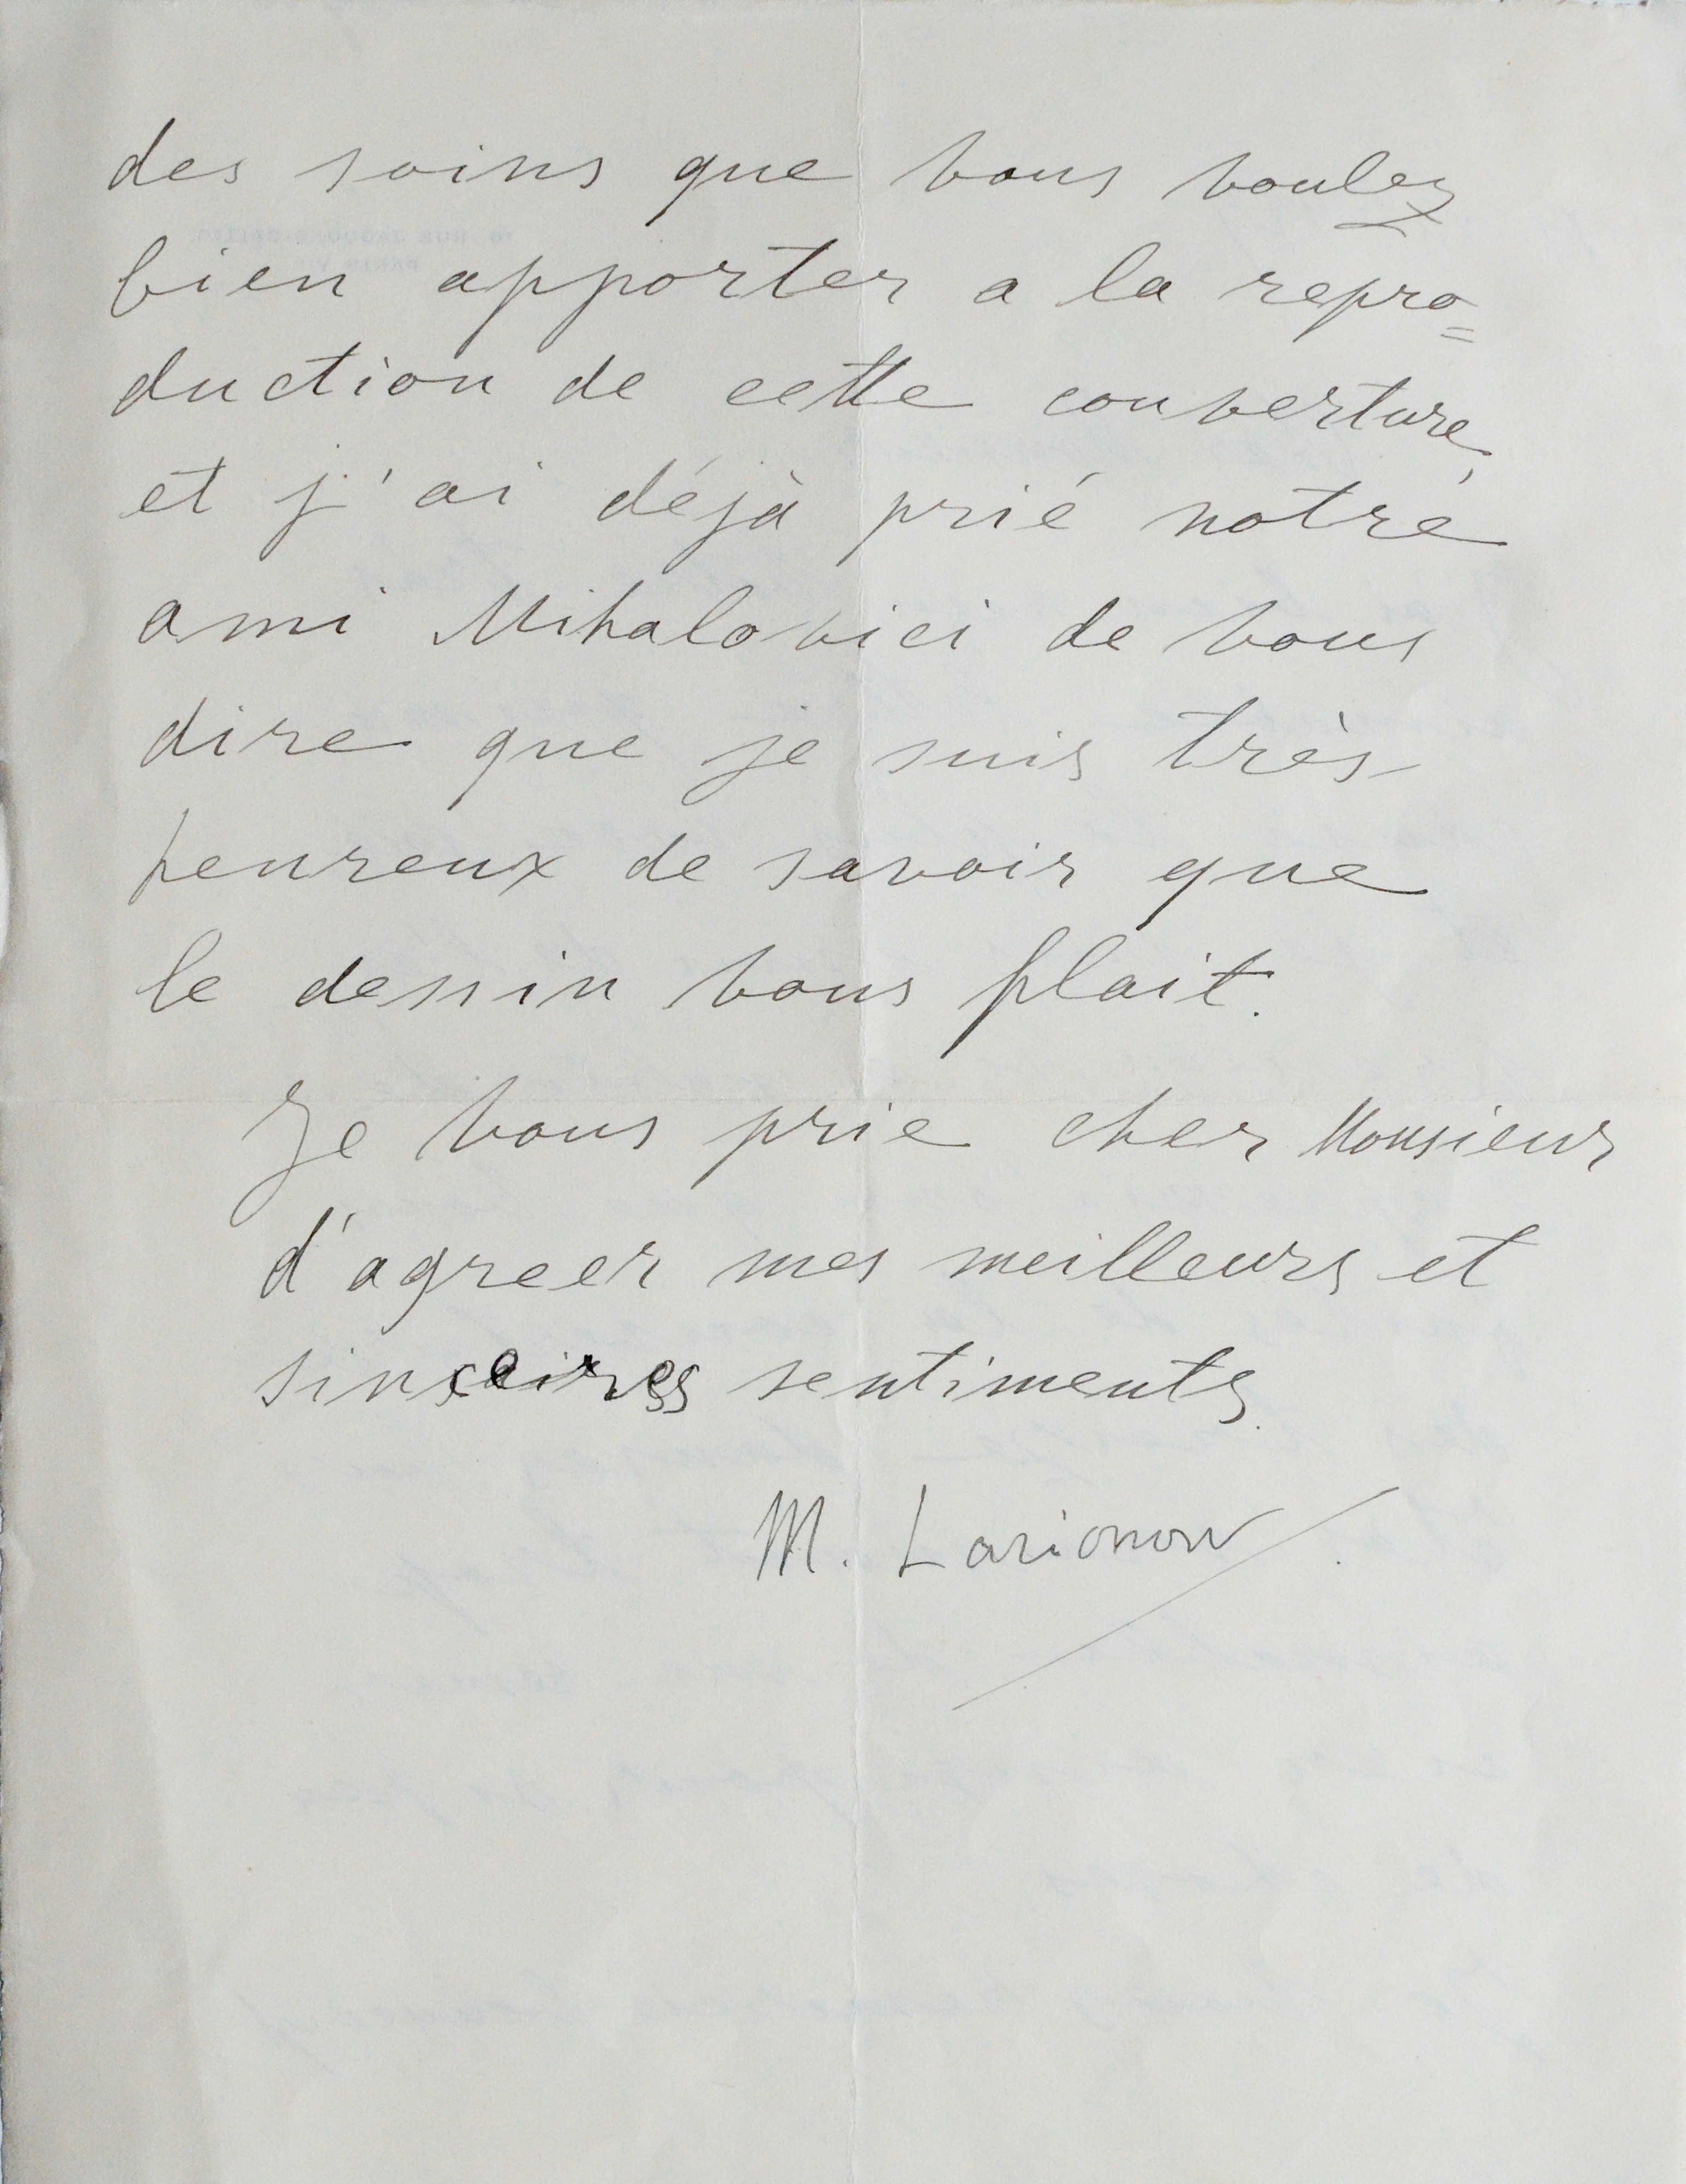 des soins que vous voulez
bien apporter a la repro=
duction de cette couverture,
et j'ai déjà prié notre
ami Mihalovici de vous
dire que je suis très
heureux de savoir que
le dessin vous plait.
Je vous prie cher Monsieur
d'agreer mes meilleurs et
sinceires sentiments.
M. Larionow